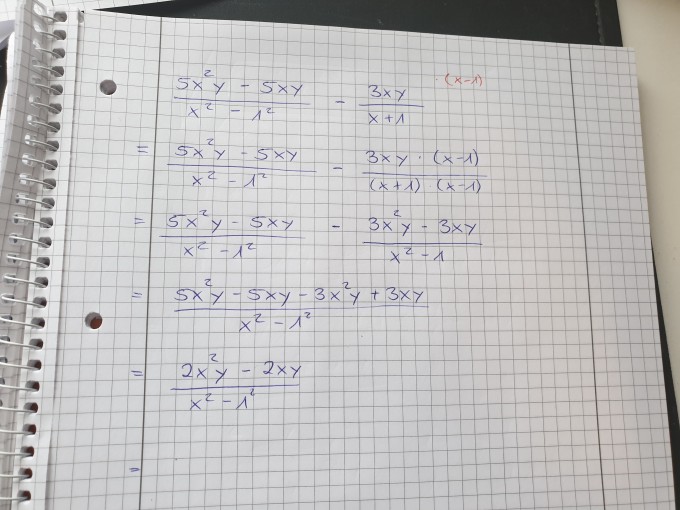 (5x²y - 5xy)/(x² - 1²) - (3xy)/(x+1) · (x-1)
= (5x²y - 5xy)/(x² - 1²) - (3xy · (x-1))/((x+1) · (x-1))
= (5x²y - 5xy)/(x² - 1²) - (3x²y - 3xy)/(x² - 1)
= (5x²y - 5xy - 3x²y + 3xy)/(x² - 1²)
= (2x²y - 2xy)/(x² - 1²)
=